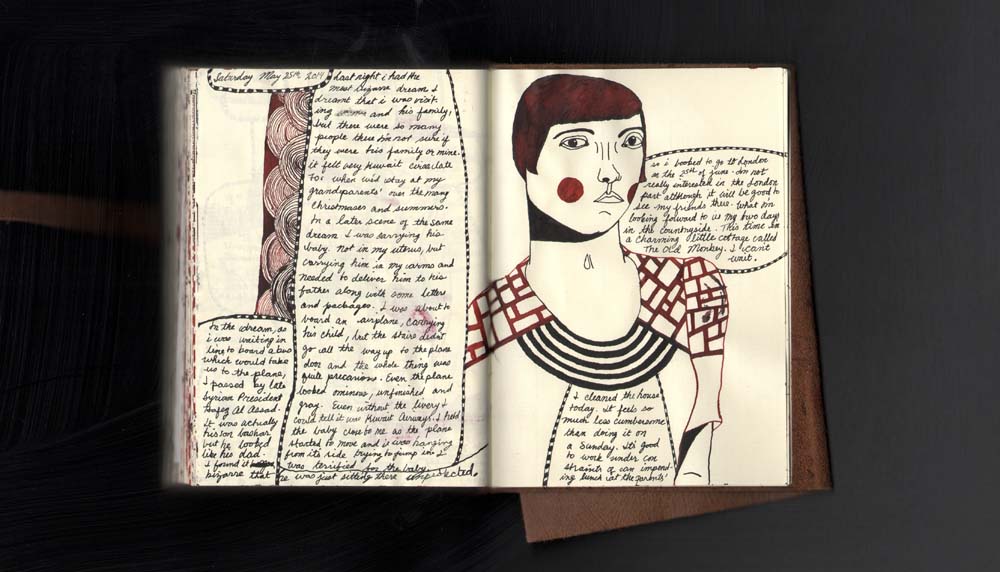 Saturday May 25th 2014
Last night i had the
most bizarre dream. I
dreamt that i was visit.
ing and his family,
but there were so many
people there i'm not sure if
they were his family or mine.
it felt very Kuwait circa late
70s when we'd stay at my
grandparents' over the many
Christmases and summers.
In a later scene of the same
dream I was carrying his
baby. Not in my uterus, but
carrying him in my arms and
needed to deliver him to his
father along with some letters
and packages. I was about to
board an airplane, carrying
his child, but the stairs didn't
go all the way up to the plane
door and the whole thing was
quite precarious. Even the plane
looked ominous, unfinished and
gray. Even without the livery I
could tell it was Kuwait Airways. I held
the baby close to me as the plane
started to move and it was hanging
from its side trying to jump in. I
was terrified for the baby.
In the dream, as
i was waiting in
line to board a bus
which would take
us to the plane,
I passed by late
Syrian President
Hafez Al Assad.
It was actually
his son Bashar
but he looked
like his dad.
I found it
bizarre that he was just sitting there unprotected.
so i booked to go to London
on the 25th of june. I'm not
really interested in the London
part although it will be good to
see my friends there. What i'm
looking foward to is my two days
in the countryside. This time in
a charming little cottage called
The Old Monkey. I can't
wait.
I cleaned the house
today. It feels so
much less cumbersome
than doing it on
a Sunday. It's good
to work under con
straints of an impend.
ing lunch at the parents'